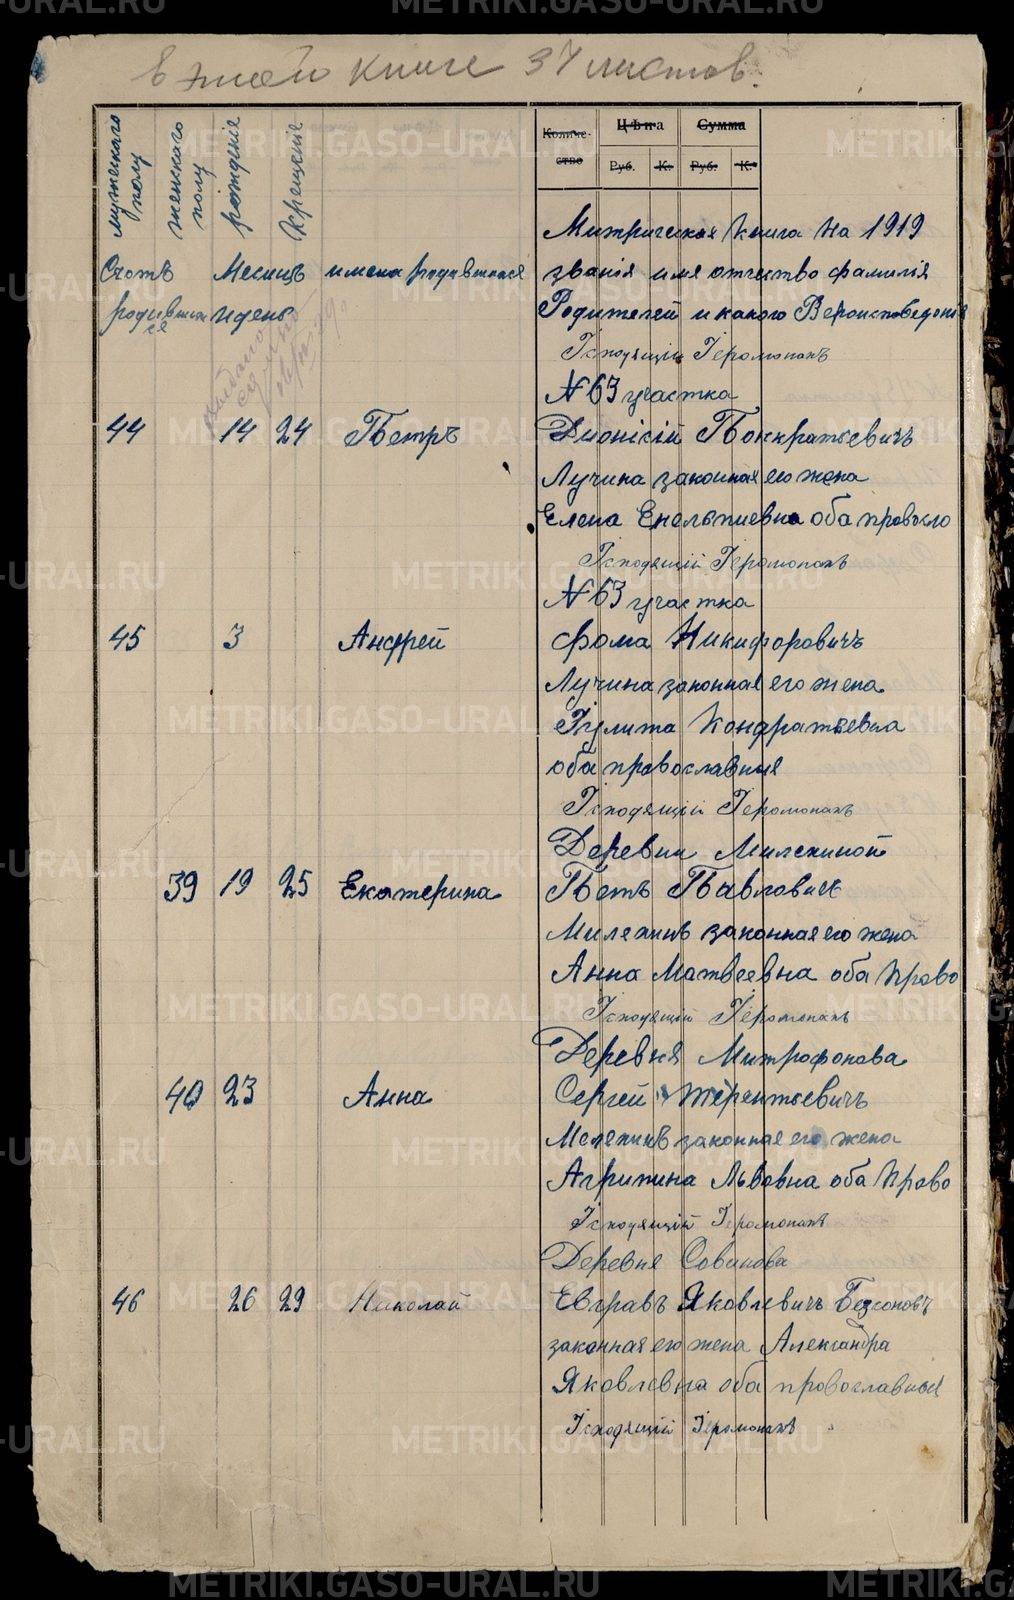 В этой книге 37 листов.
Количе-
ство
Цѣна
Сумма
Руб. К. Руб. К.
мужескаго полу
женскаго полу
рожденіе
крещеніе
Метрическая книга на 1919
Счетъ Месяцъ имена родившихся званія имя отчество фамилія
родившихся и день Родителей и какого Вероисповеданія
Іеромонахъ
N 63 участка
44 14 24 Петръ Дионісій Панкратьевичъ
Лучина законная его жена
Елена Емельпиевна оба правосло
Іеромонахъ
N 63 участка
45 3 Андрей Фома Никифоровичъ
Лучина законная его жена
Іулита Кондратьевна
оба православныя
Іеромонахъ
Деревни Милехиной
39 19 25 Екатерина Петъ Павловичъ
Милехинъ законная его жена
Анна Матвеевна оба право
Іеромонахъ
Деревня Митрофонова
40 23 Анна Сергей Терентьевичъ
Мелехинъ законная его жена
Агрипина Львовна оба право
Іеромонахъ
Деревня Савинова
46 26 29 Николай Евгравъ Яковлевичъ Безсоновъ
законная его жена Александра
Яковлевна оба провославныя
Іеромонахъ
METRIKI.GASO-URAL.RU